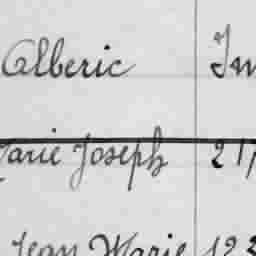 Alberic
Marie Joseph 21
Jean Marie 123